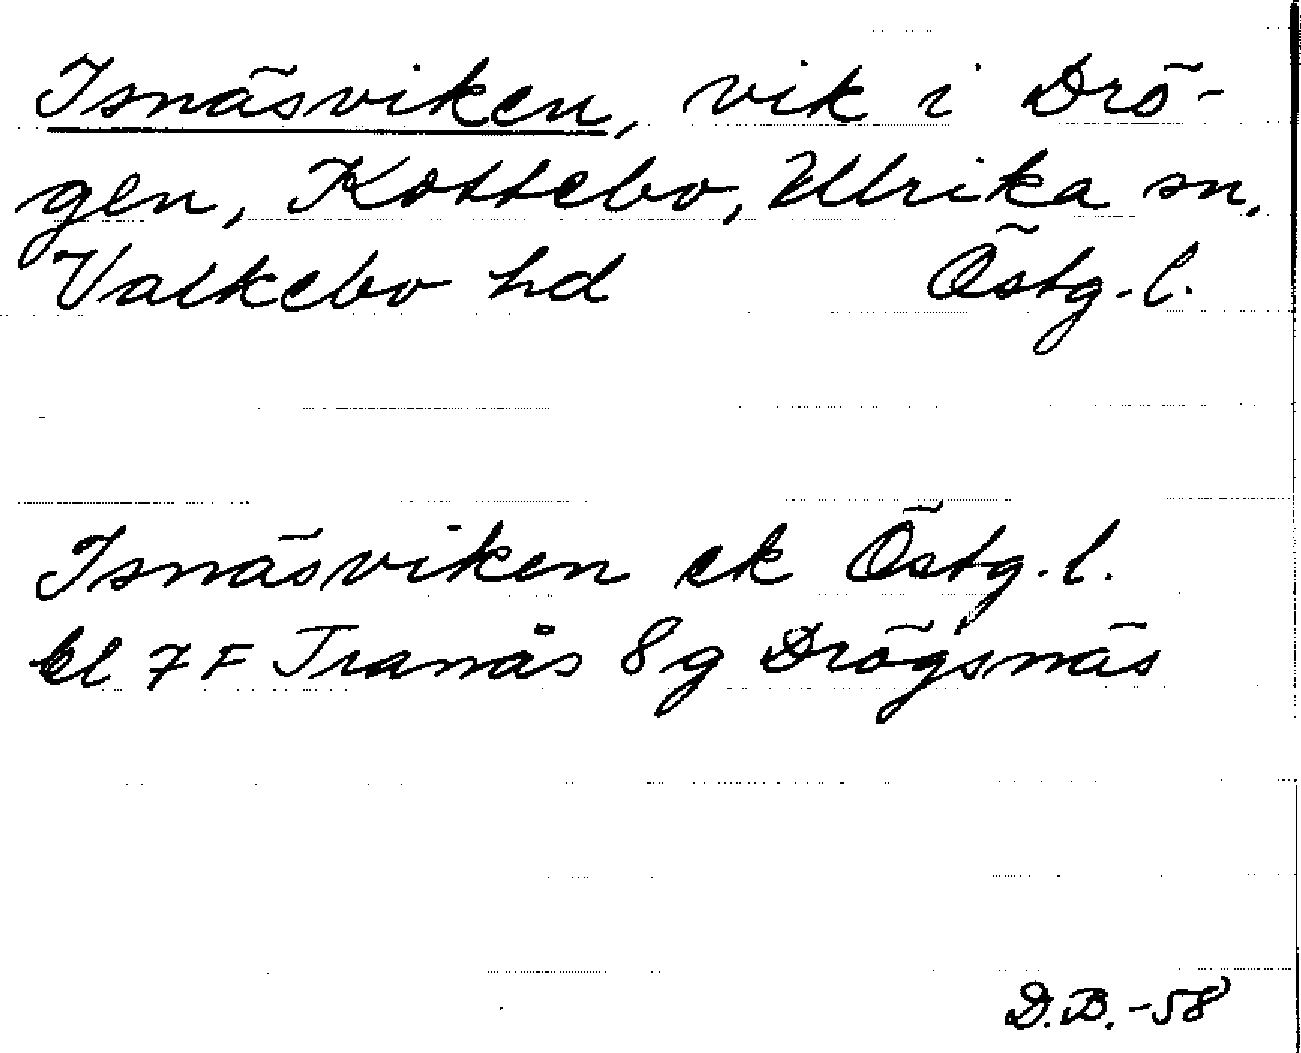 Isnäsviken, vik i Drö-
gen, Kottebo, Ulrika sn,
Valkebo hd Östg. l.
Isnäsviken ek Östg. l.
bl 7 F Tranås 8 g Drögsnäs
D.B. -58